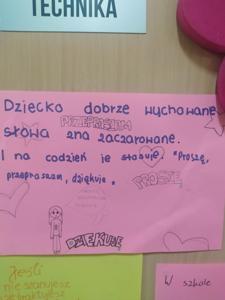 TECHNIKA
Dziecko dobrze wychowane
PRZEPRASZAM
słowa zna zaczarowane.
I na codzień je stosuje. "Proszę,
PROSZĘ
przepraszam, dziękuję.
DZIĘKUJĘ
Jeśli
nie szanujesz
W szkole